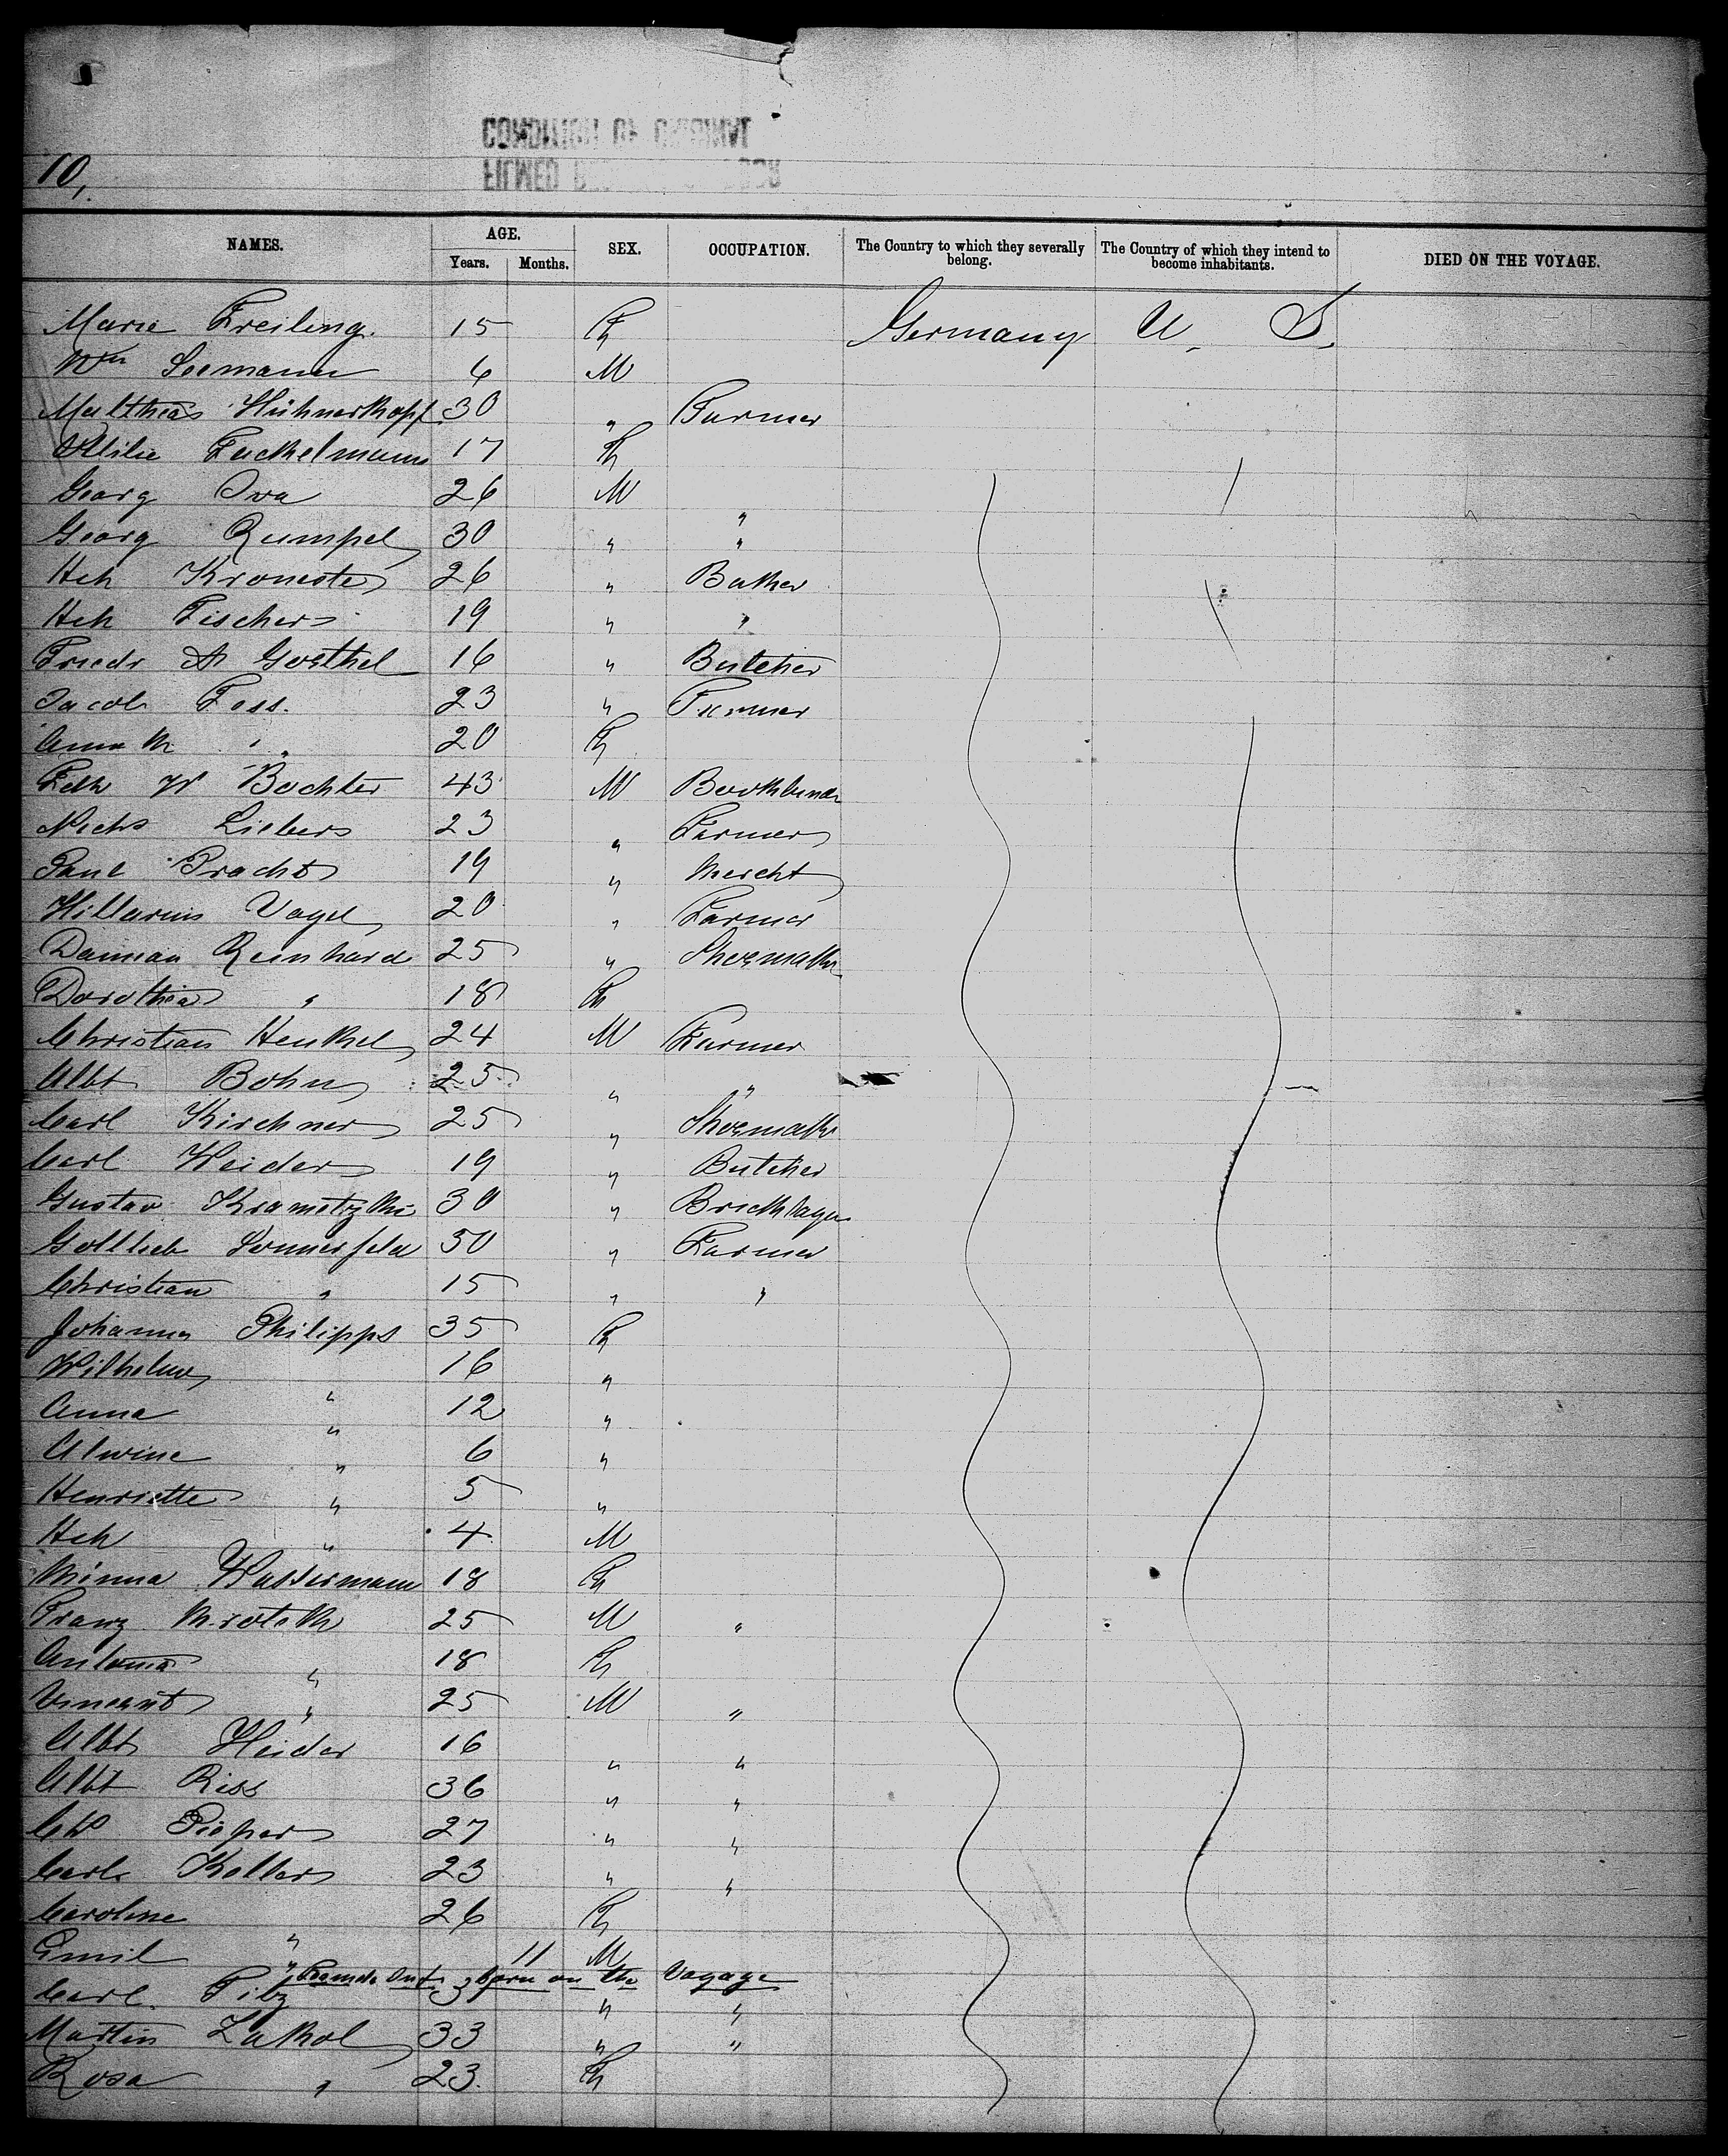 CONDITION OF ORIGINAL
FILMED
10,
NAMES. AGE. SEX. OCCUPATION. The Country to which they severally belong. The Country of which they intend to become inhabitants. DIED ON THE VOYAGE.
Years. Months.
Marie Freiling. 15 F Germany U. S.
Wm Seemann 6 M
Matthias Hühnerkopf 30 " Farmer
Ottilie Fackelmann 17 F
Georg Ova 26 M "
Georg Rumpel 30 " "
Hch Kroneote 26 " Baker
Hch Fischer 19 " "
Friedr A Goethel 16 " Butcher
Jacob Foss. 23 " Farmer
Anna M " 20 F
Fdk W Bochter 43 M Bookbinder
Nichs Liebers 23 " Farmer
Paul Pracht 19 " Mercht
Hillarius Vogel 20 " Farmer
Damian Reinhard 25 " Shoemaker
Dorothea " 18 F
Christian Henkel 24 M Farmer
Albt Bohn 25 " "
Carl Kirchner 25 " Shoemaker
Carl Heider 19 " Butcher
Gustav Krametzki 30 " Bricklayer
Gottlieb Sonnerfeld 50 " Farmer
Christian " 15 " "
Johanna Philipps 35 F
Wilhelm " 16 "
Anna " 12 "
Alwine " 6 "
Henriette " 5 "
Hch " 4 M
Minna Wassermann 18 F
Franz Mrotek 25 M "
Antonia " 18 F
Vincent " 25 M "
Albt Heider 16 " "
Albt Riss 36 " "
Pieper 27 " "
Carl Keller 23 " "
Caroline " 26 F
Emil " 11 M
born on the Voyage
Carl Pilz 31 " "
Martin Zakol 33 " "
Rosa " 23. F